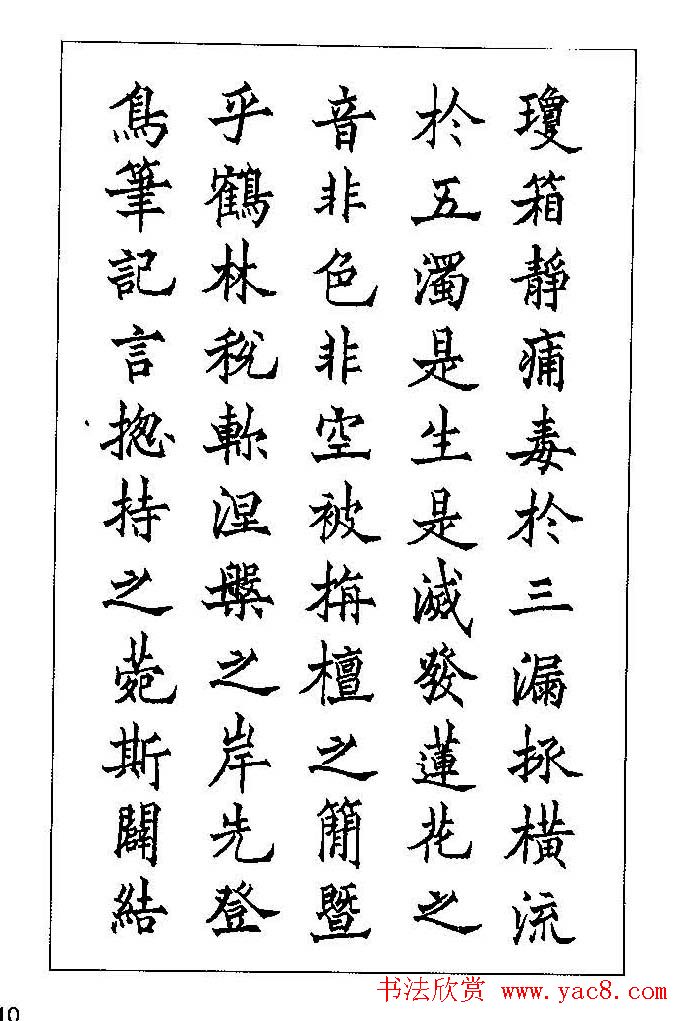 瓊箱靜痛毒於三漏拯橫流
於五濁是生是滅發蓮花之
音非色非空被栴檀之簡暨
乎鶴林稅軟涅槃之岸先登
鳥筆記言揔持之菀斯闢結
书法欣赏 www.yac8.com
10